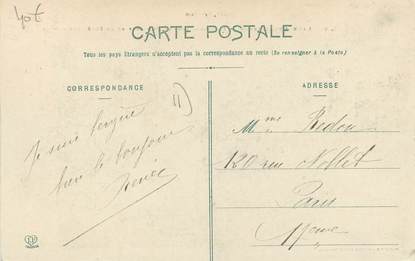 CARTE POSTALE
Tous les pays Etrangers n'acceptent pas la correspondance au recto (Se renseigner à la Poste)
CORRESPONDANCE
Je suis
bien le bonjour
Renée
ADRESSE
Mme Redon
120 rue Nollet
Paris
17eme